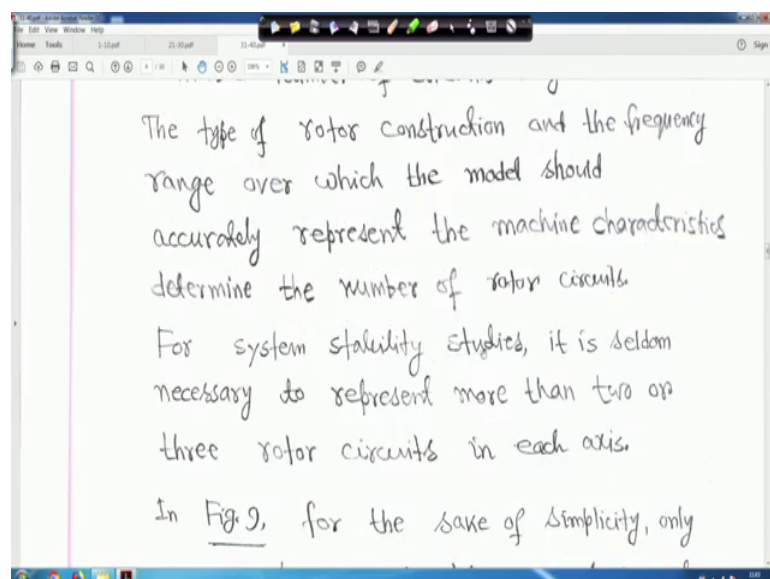 31-40.pdf - Adobe Acrobat Reader DC
File Edit View Window Help
Home Tools 1-10.pdf 21-30.pdf 31-40.pdf × Sign
The type of rotor construction and the frequency
range over which the model should
accurately represent the machine characteristics
determine the number of rotor circuits.
For system stability studies, it is seldom
necessary to represent more than two or
three rotor circuits in each axis.
In Fig. 9, for the sake of simplicity, only